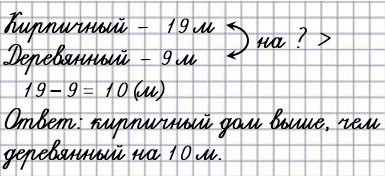 Кирпичный – 19 м
Деревянный – 9 м
на ? >
19 – 9 = 10 (м)
Ответ: кирпичный дом выше, чем
деревянный на 10 м.